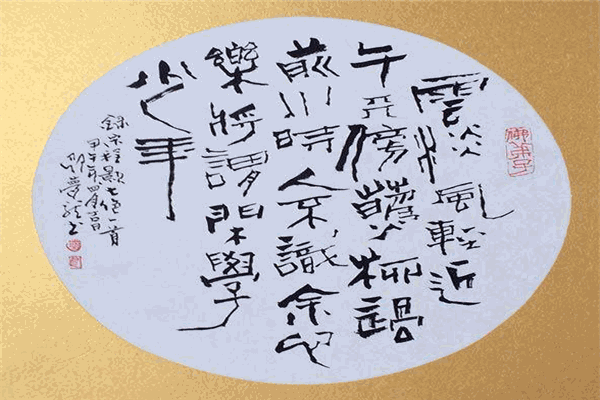 雲淡風輕近
午天傍花隨柳過
前川時人不識余心
樂將謂閑學
少年
錄宋程顥七絕一首
甲午年四月吉日
夢龍书